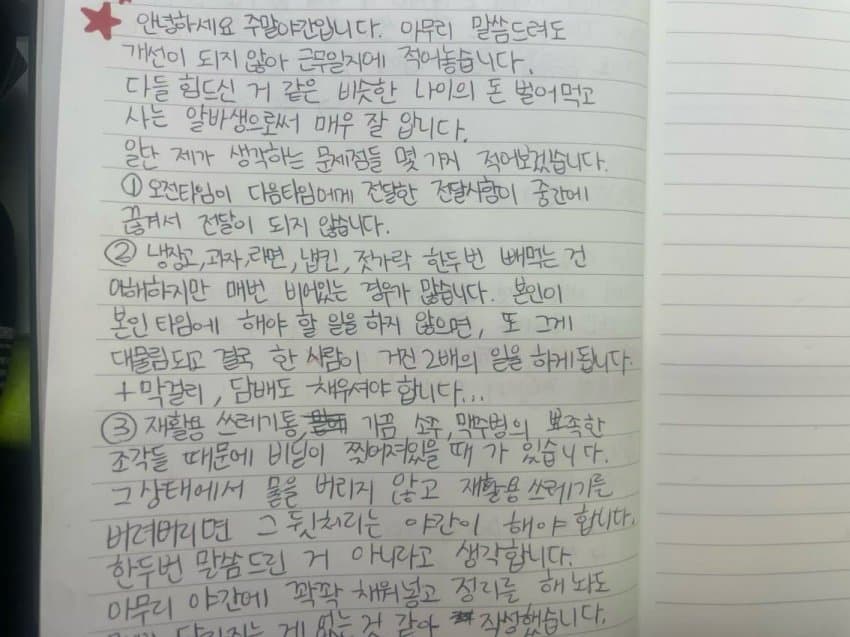 안녕하세요 주말야간입니다. 아무리 말씀드려도
개선이 되지 않아 근무일지에 적어놓습니다.
다들 힘드신 거 같은 비슷한 나이의 돈 벌어먹고
사는 알바생으로써 매우 잘 압니다.
일단 제가 생각하는 문제점들 몇 가지 적어보겠습니다.
① 오전타임이 다음타임에게 전달한 전달사항이 중간에
끊겨서 전달이 되지 않습니다.
② 냉장고, 과자, 라면, 냅킨, 젓가락 한두번 빼먹는 건
이해하지만 매번 비어있는 경우가 많습니다. 본인이
본인 타임에 해야 할 일을 하지 않으면, 또 그게
대물림되고 결국 한 사람이 거진 2배의 일을 하게 됩니다.
+ 막걸리, 담배도 채우셔야 합니다...
③ 재활용 쓰레기통, 가끔 소주, 맥주병의 뾰족한
조각들 때문에 비닐이 찢어져있을 때 가 있습니다.
그 상태에서 물을 버리지 않고 재활용 쓰레기를
버려버리면 그 뒷처리는 야간이 해야 합니다.
한두번 말씀드린 거 아니라고 생각합니다.
아무리 야간에 꽉꽉 채워넣고 정리를 해 놔도
달라지는 게 없는 것 같아 작성했습니다.